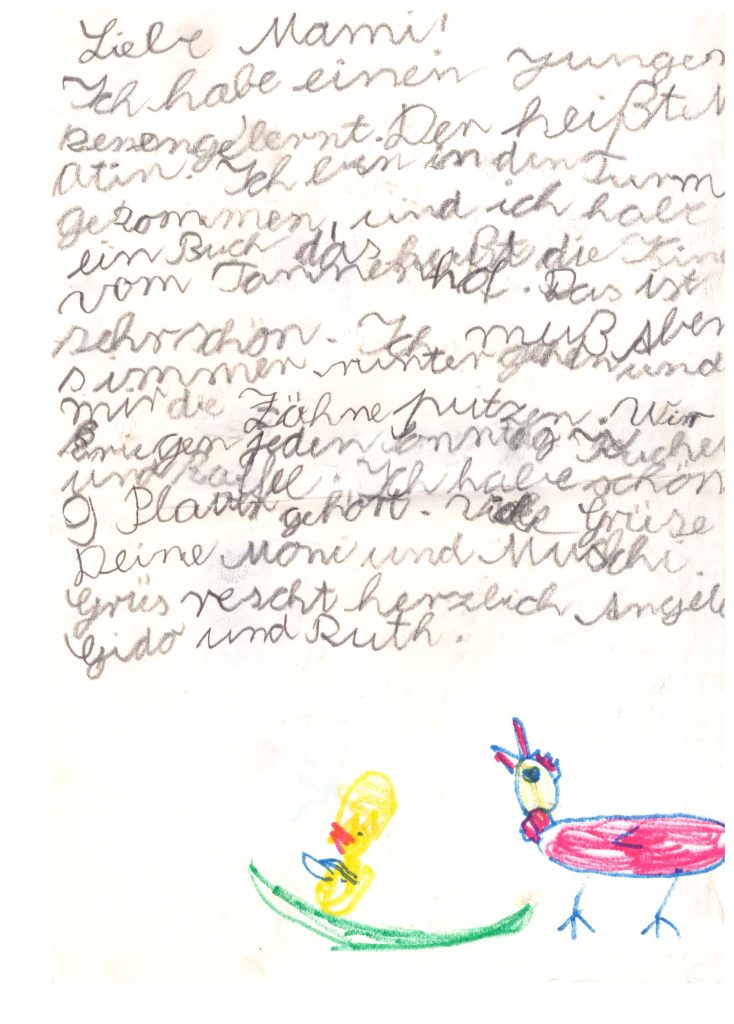 Liebe Mami!
Ich habe einen yungen
kenengelernt. Der heißt M
atin. Ich bin in den Turm
gekommen, und ich habe
ein Buch das heißt die Kin
vom Tannenhof. Das ist
sehr schön. Ich muß aber
immer runter gehen und
mir die Zähne putzen. Wir
kriegen jeden sonntag Kuchen
und kaffee. Ich habe schön
9 gehört. viele Grüse
Deine Moni und Muschi.
Grüs rescht herzlich Angela
Gido und Ruth.